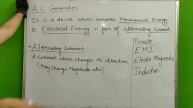 A.C. Generator
It is a device which converts Mechanical Energy
to Electrical Energy in form of alternating Current
Alternating Current
A current which changes its direction
(May change Magnitude also)
Process
E M I
Electro Magnetic
Induction